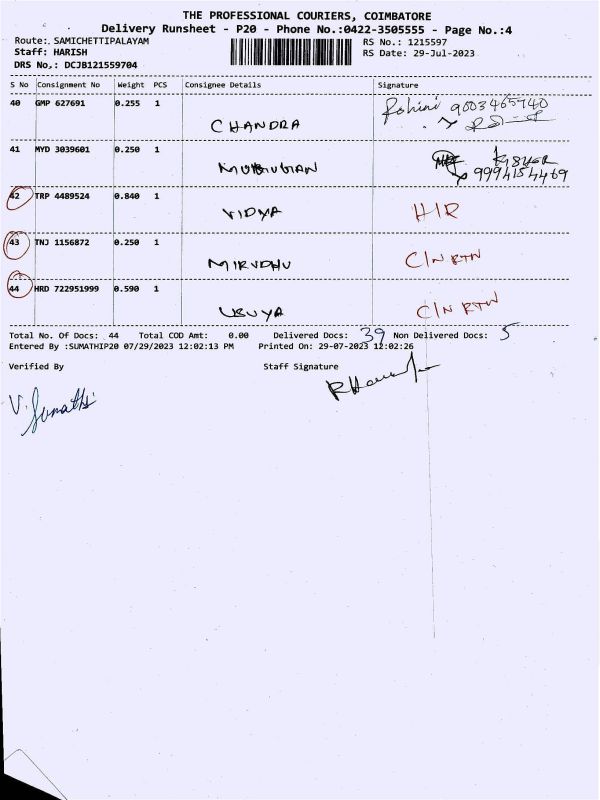 THE PROFESSIONAL COURIERS, COIMBATORE
Delivery Runsheet - P20 - Phone No.:0422-3505555 - Page No.:4
Route: SAMICHETTIPALAYAM RS No.: 1215597
Staff: HARISH RS Date: 29-Jul-2023
DRS No,: DCJB121559704
S No Consignment No Weight PCS Consignee Details Signature
40 GMP 627691 0.255 1 CHANDRA Rohini 9003465740
41 MYD 3039601 0.250 1 MURUGAN 9994154469
42 TRP 4489524 0.840 1 VIDYA H/R
43 TNJ 1156872 0.250 1 MIRUDHU C/N RTN
44 HRD 722951999 0.590 1 C/N RTN
Total No. Of Docs: 44 Total COD Amt: 0.00 Delivered Docs: 39 Non Delivered Docs: 5
Entered By :SUMATHIP20 07/29/2023 12:02:13 PM Printed On: 29-07-2023 12:02:26
Verified By Staff Signature
V. Sumathi